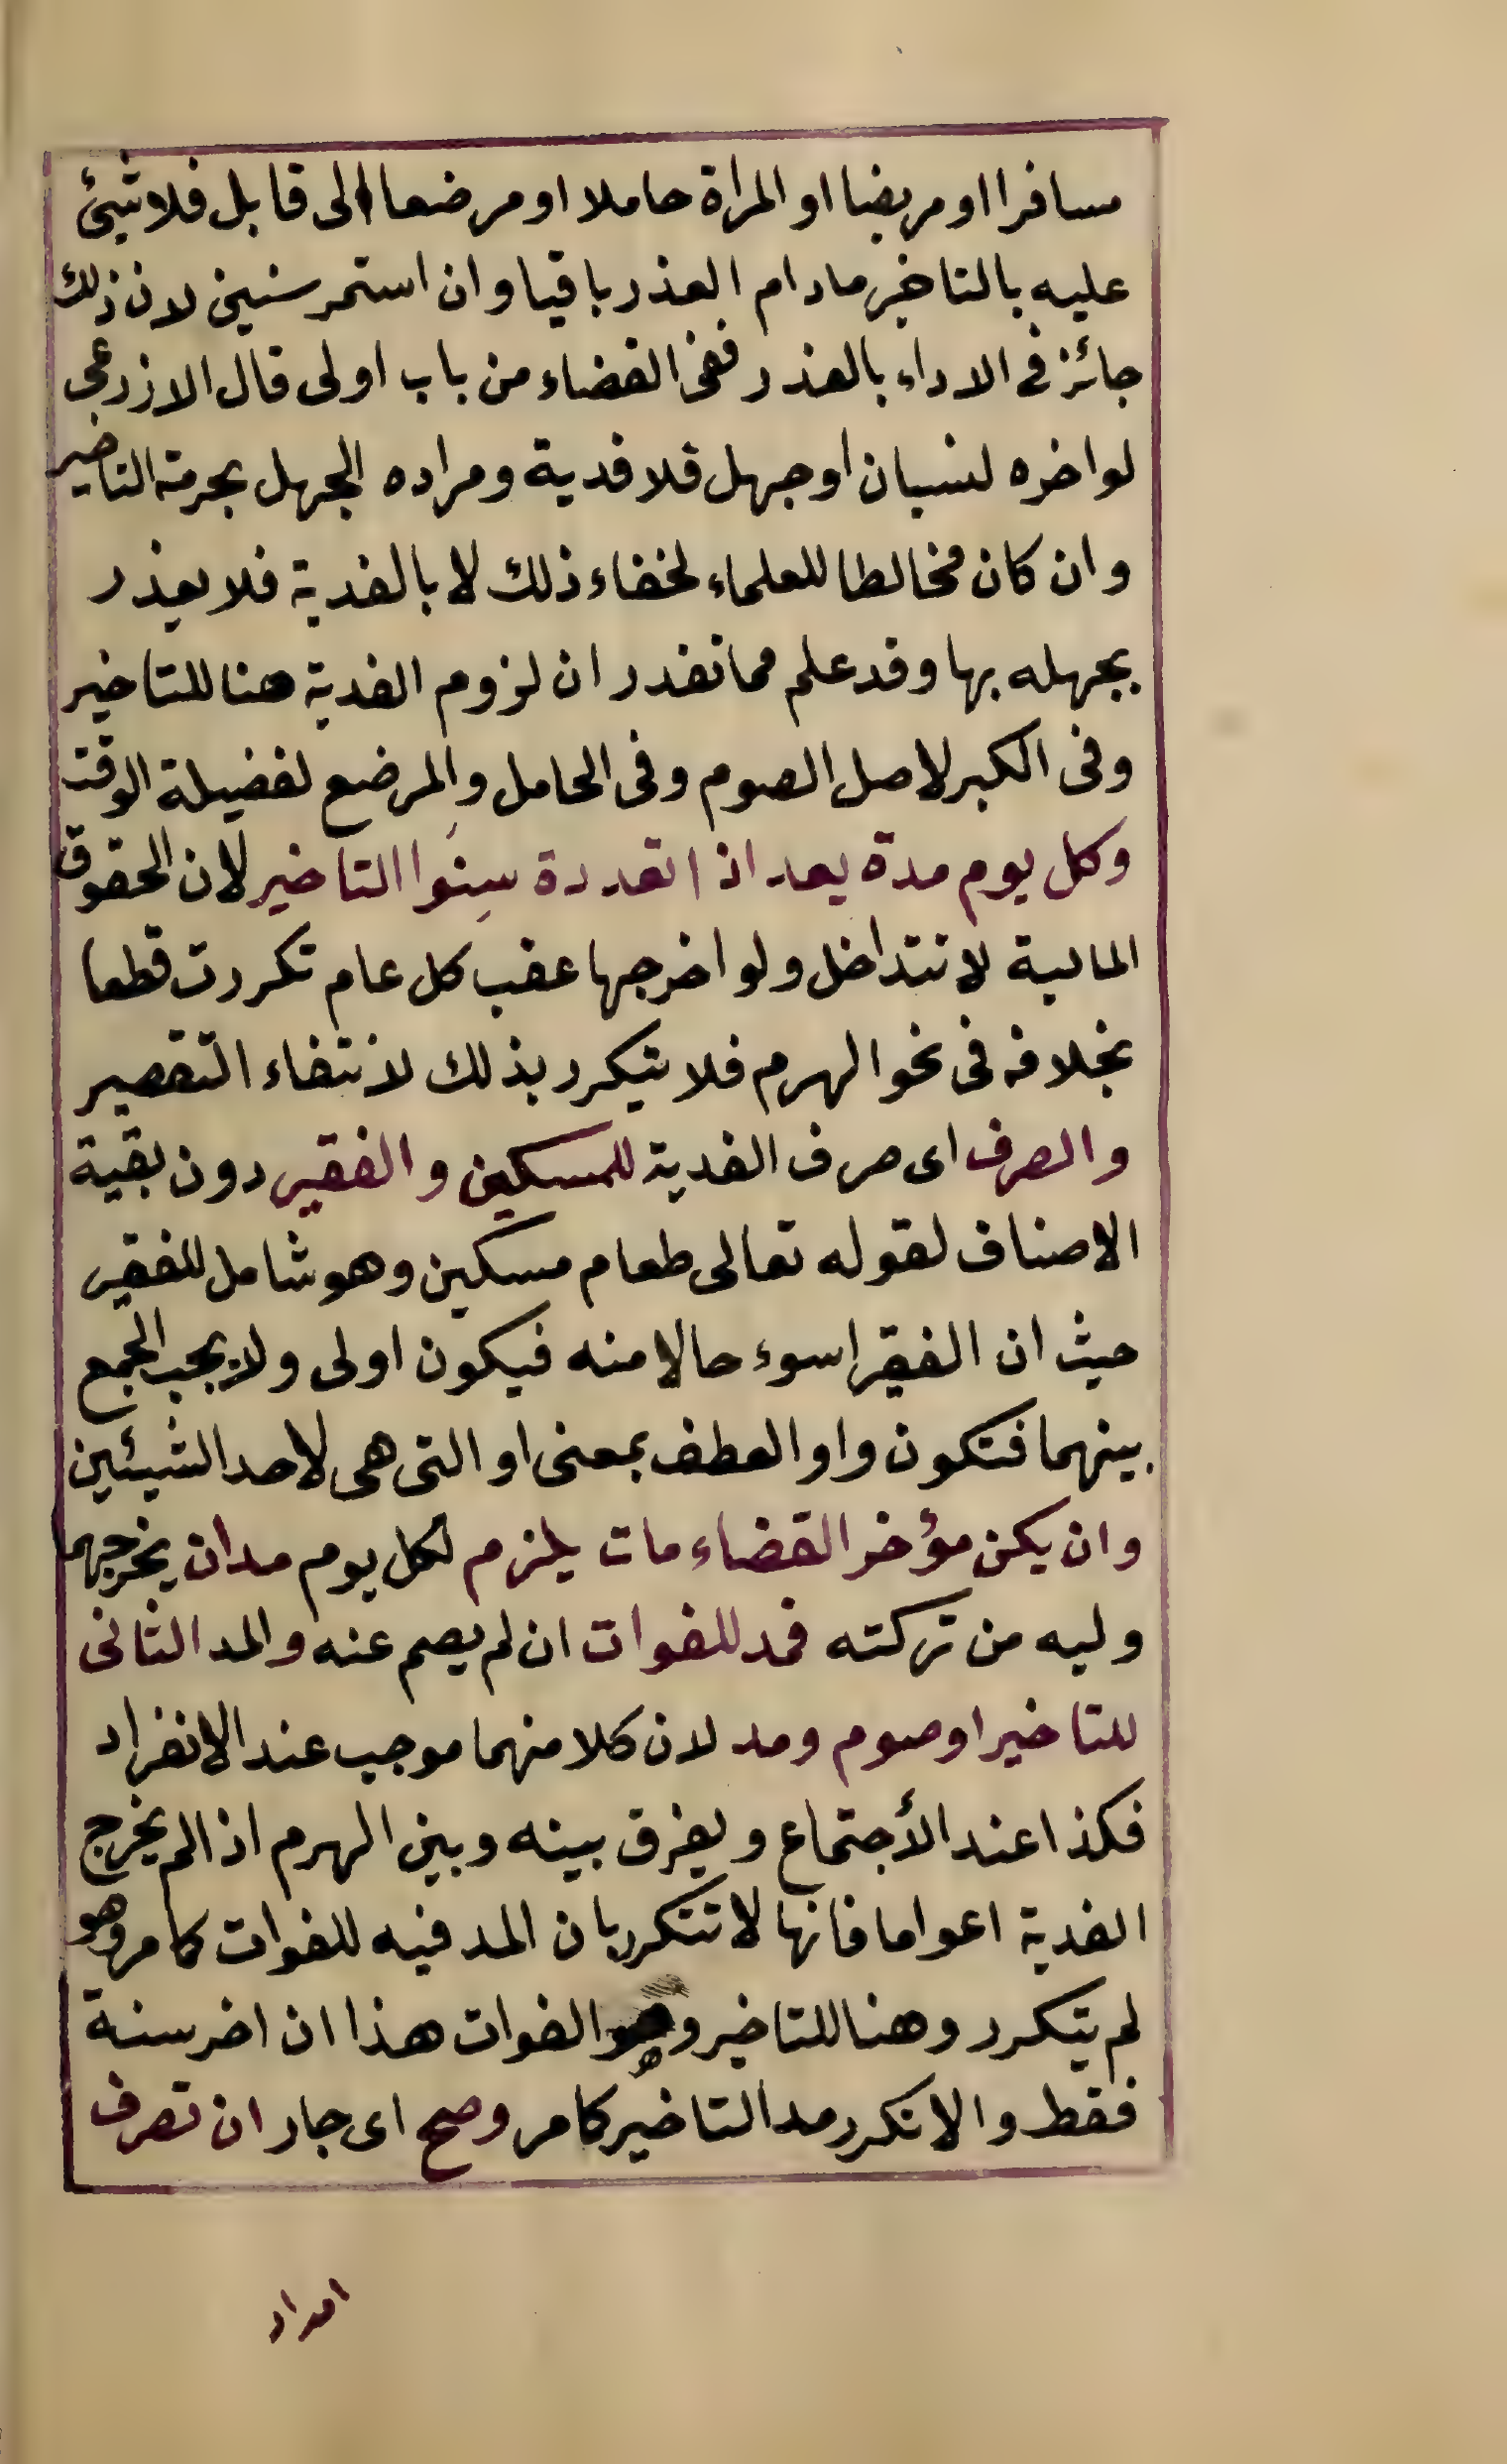 مسافرا او مريضا او المراة حاملا او مرضعا الى قابل فلا شيئ
عليه بالتاخير مادام العذر باقيا وان استمر سنين لان ذلك
جائز فى الاداء بالعذر ففى القضاء من باب اولى قال الازرعى
لو اخره لنسيان او جهل فلا فدية ومراده الجهل بحرمة التاخير
وان كان مخالطا للعلماء لخفاء ذلك لا بالفدية فلا يعذر
بجهله بها وقد علم مما تقدر ان لزوم الفدية هنا للتاخير
وفى الكبر لاصل الصوم وفى الحامل والمرضع لفضيلة الوقت
وكل يوم مدة يعد اذا تعددة سِنَوا التاخير لان الحقوق
المالية لا تتداخل ولو اخرجها عقب كل عام تكررت قطعا
بخلافه فى نحو الهرم فلا يتكرر بذلك لانتفاء التقصير
والصرف اى صرف الفدية للمسكين والفقير دون بقية
الاصناف لقوله تعالى طعام مسكين وهو شامل للفقير
حيث ان الفقير اسوء حالا منه فيكون اولى ولا يجب الجمع
بينهما فتكون واو العطف بمعنى او التى هى لاحد الشيئين
وان يكن مؤخر القضاء مات يلزم لكل يوم مدان يخرجهما
وليه من تركته فمد للفوات ان لم يصم عنه والمد الثانى
للتاخير او صوم ومد لان كلا منهما موجب عند الانفراد
فكذا عند الأجتماع ويفرق بينه وبين الهرم اذا لم يخرج
الفدية اعواما فانها لا تتكرر بان المد فيه للفوات كما مر وهو
لم يتكرر وهنا للتاخير وهو الفوات هذا ان اخر سنة
فقط والا تكرر مد التاخير كما مر وصح اى جار ان تصرف
امداد